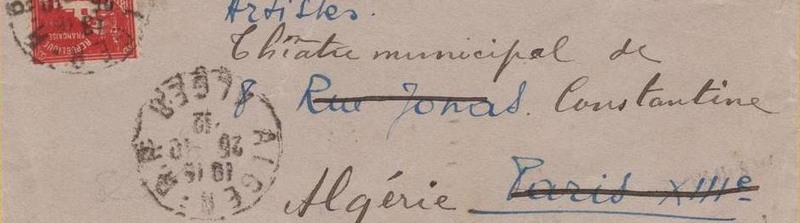 Artistes.
Théatre municipal de
8 Rue Jonas. Constantine
Algérie Paris XIIIe
RÉPUBLIQUE
FRANÇAISE
ALGER
ALGER
12
25